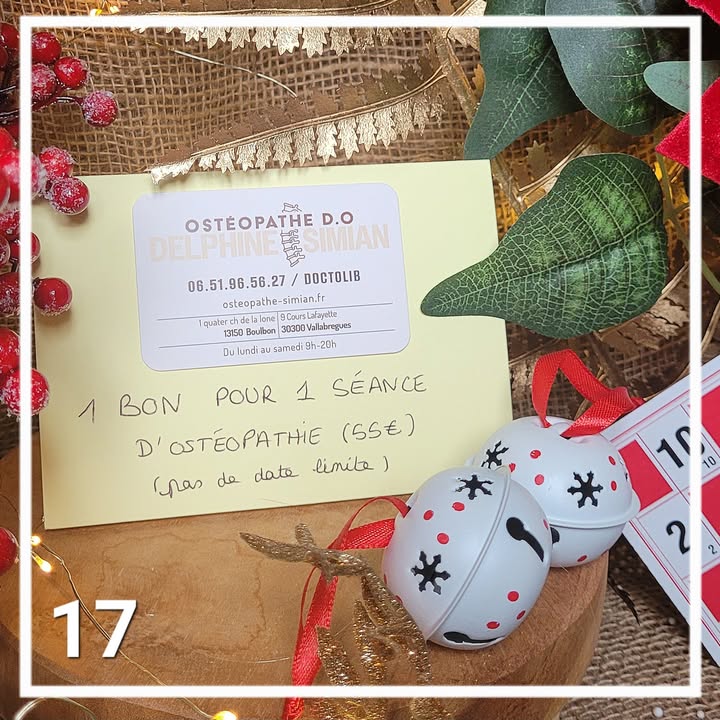 OSTÉOPATHE D.O
DELPHINE SIMIAN
06.51.96.56.27 / DOCTOLIB
osteopathe-simian.fr
1 quater ch de la lone 9 Cours Lafayette
13150 Boulbon 30300 Vallabregues
Du lundi au samedi 9h-20h
1 BON POUR 1 SÉANCE
D'OSTÉOPATHIE (55€)
(pas de date limite)
10
10
2
2
17